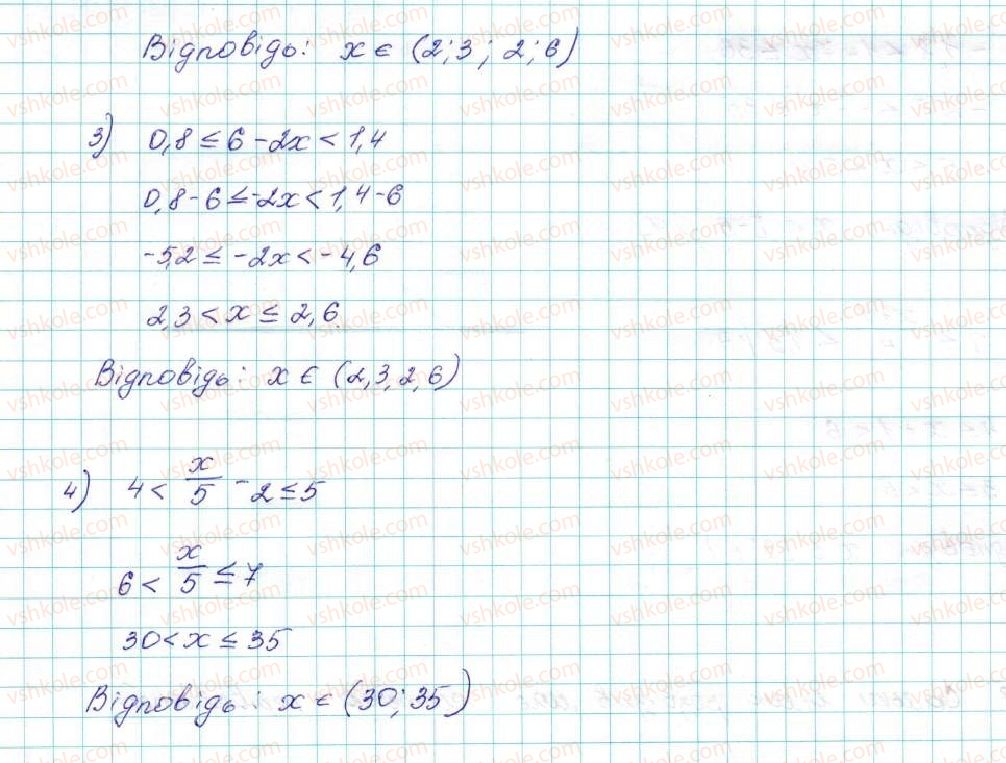 Відповідь: x ∈ (2; 3; 2; 6)
3) 0,8 ≤ 6 - 2x < 1,4
0,8 - 6 ≤ -2x < 1,4 - 6
-5,2 ≤ -2x < -4,6
2,3 < x ≤ 2,6.
Відповідь: x ∈ (2,3, 2,6)
4) 4 < x/5 - 2 ≤ 5
6 < x/5 ≤ 7
30 < x ≤ 35
Відповідь: x ∈ (30; 35)